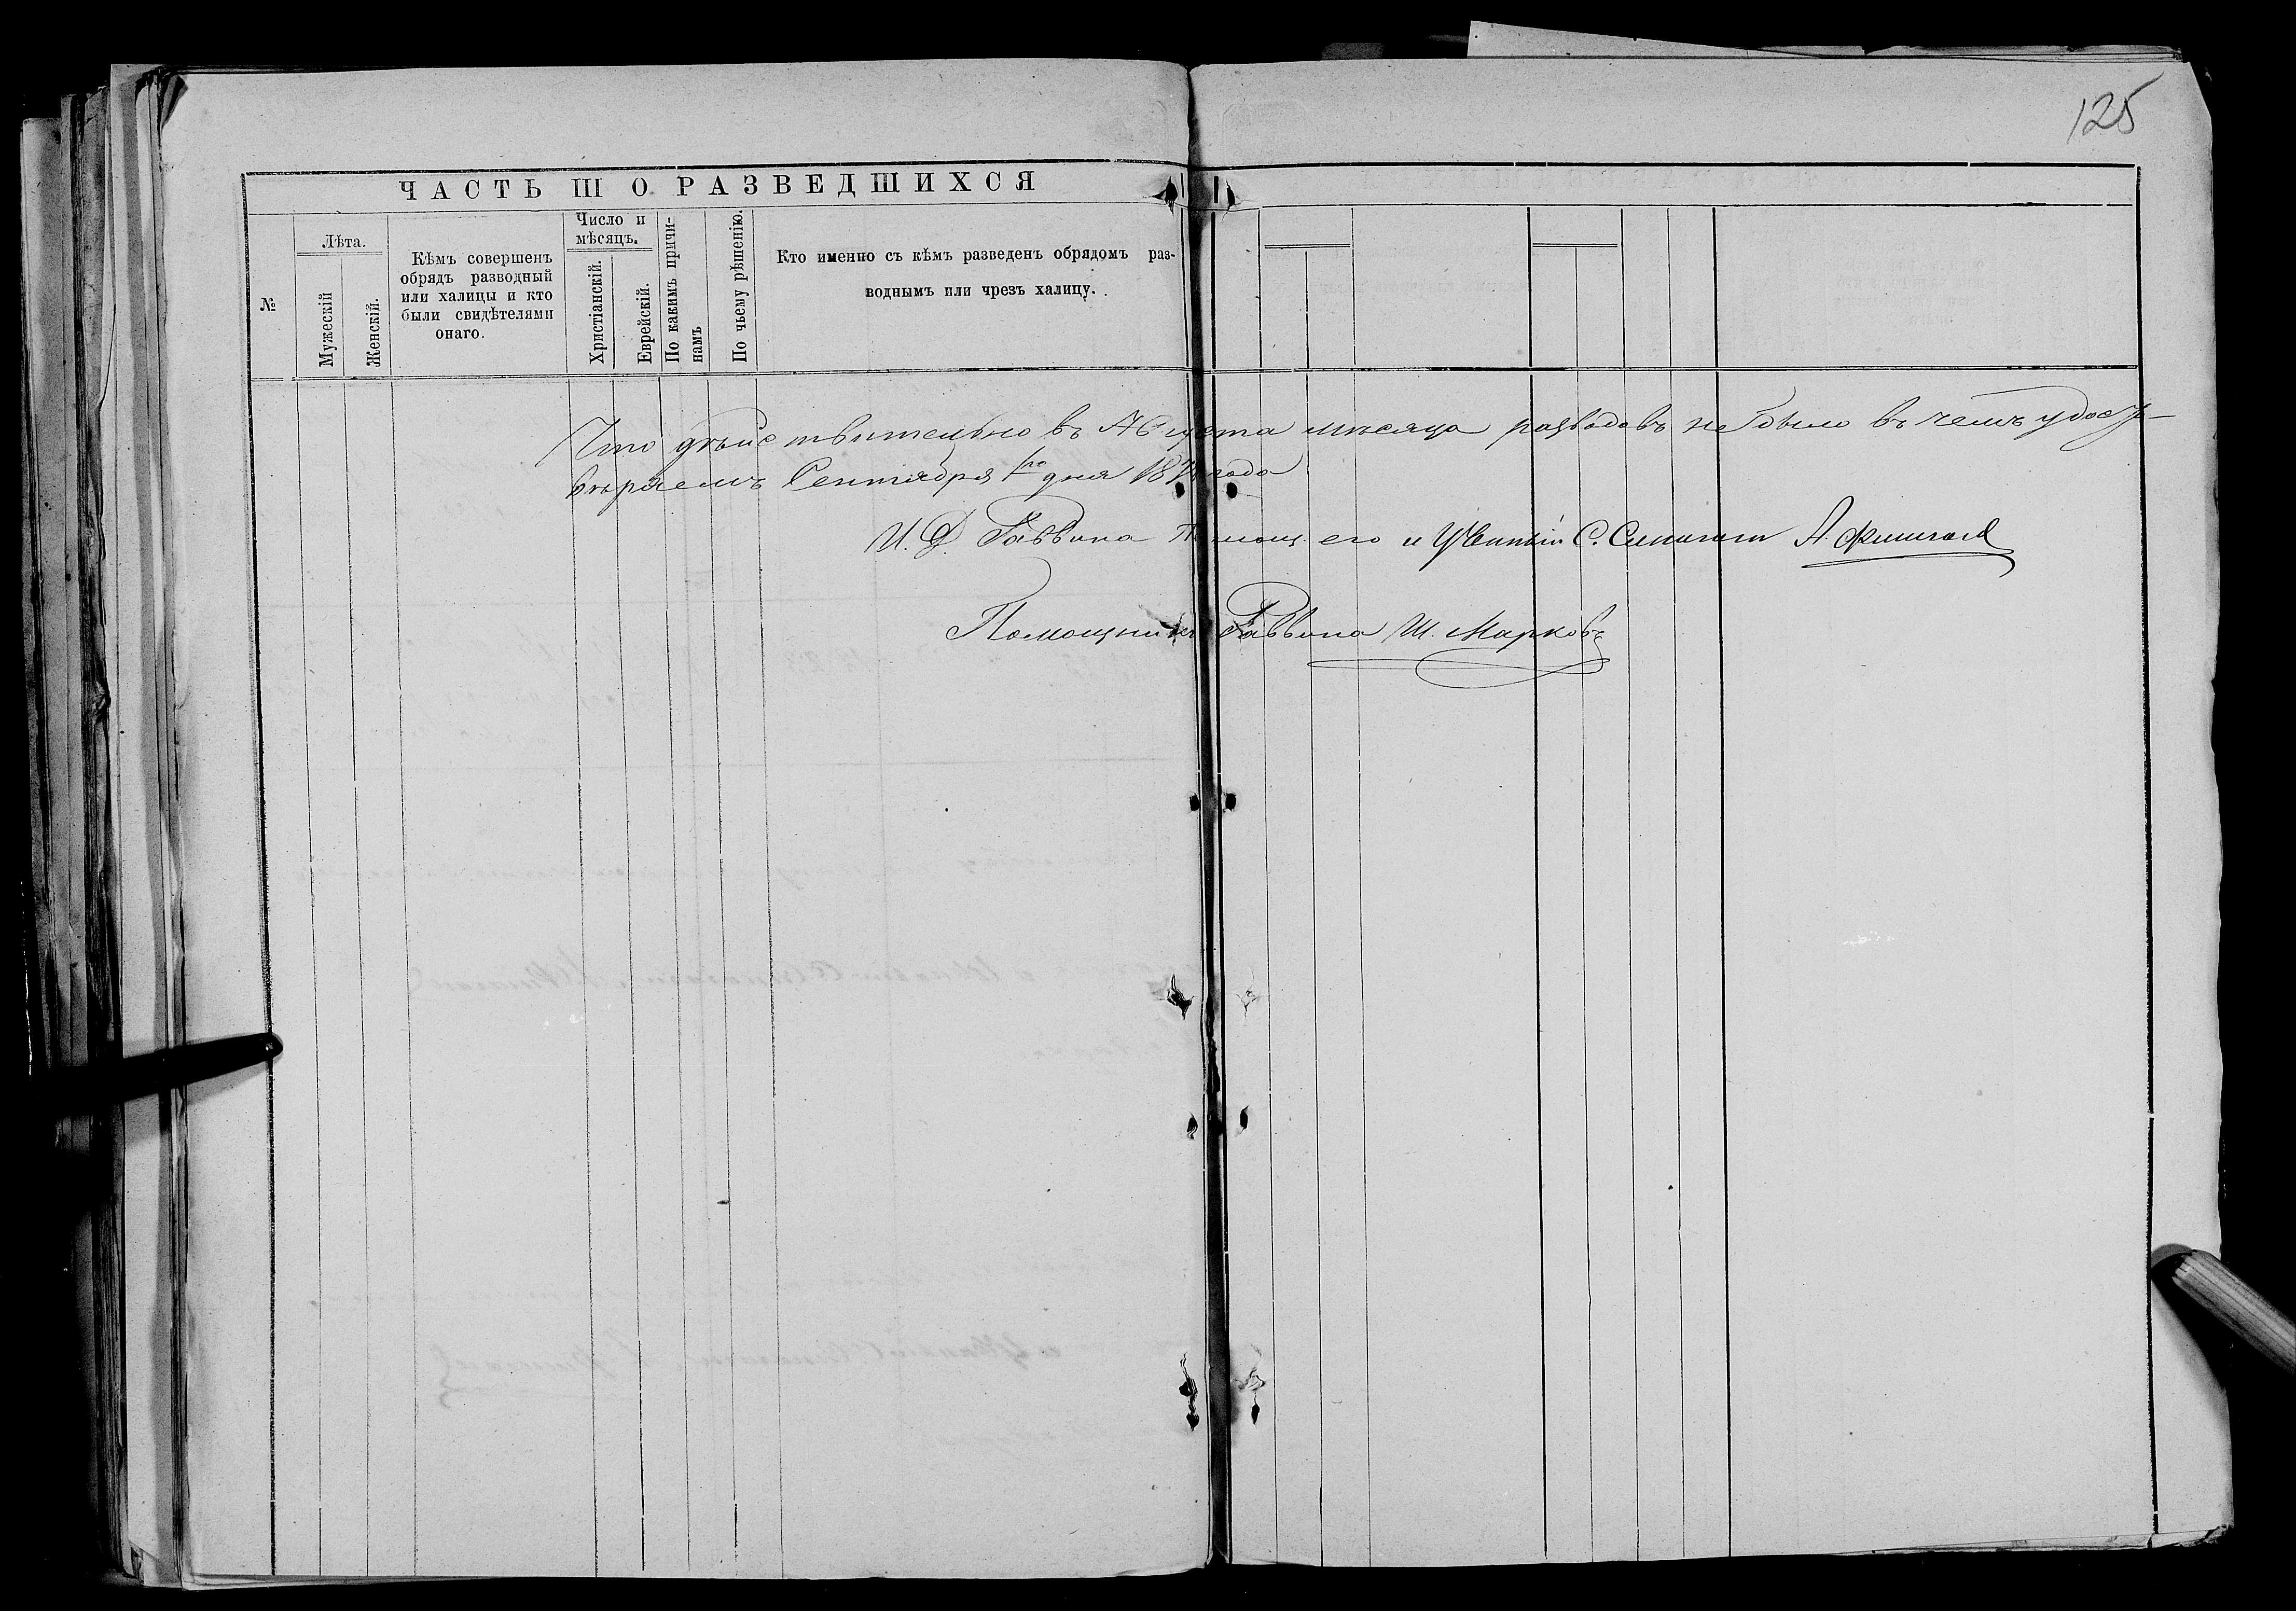 125
ЧАСТЬ III О РАЗВЕДШИХСЯ
№
Лѣта.
Мужескій
Женскій.
Кѣмъ совершенъ
обрядъ разводный
или халицы и кто
были свидѣтелями
онаго.
Число и
мѣсяцъ.
Христіанскій.
Еврейскій.
По какимъ причи-
намъ
По чьему рѣшенію.
Кто именно съ кѣмъ разведенъ обрядомъ раз-
воднымъ или чрезъ халицу.
Что дѣйствительно въ Августа мѣсяца разводовъ не было въ чемъ удосто-
вѣряемъ Сентября 1го дня года
И. Д. Раввина его и
Помощникъ Раввина Ш. Марковъ